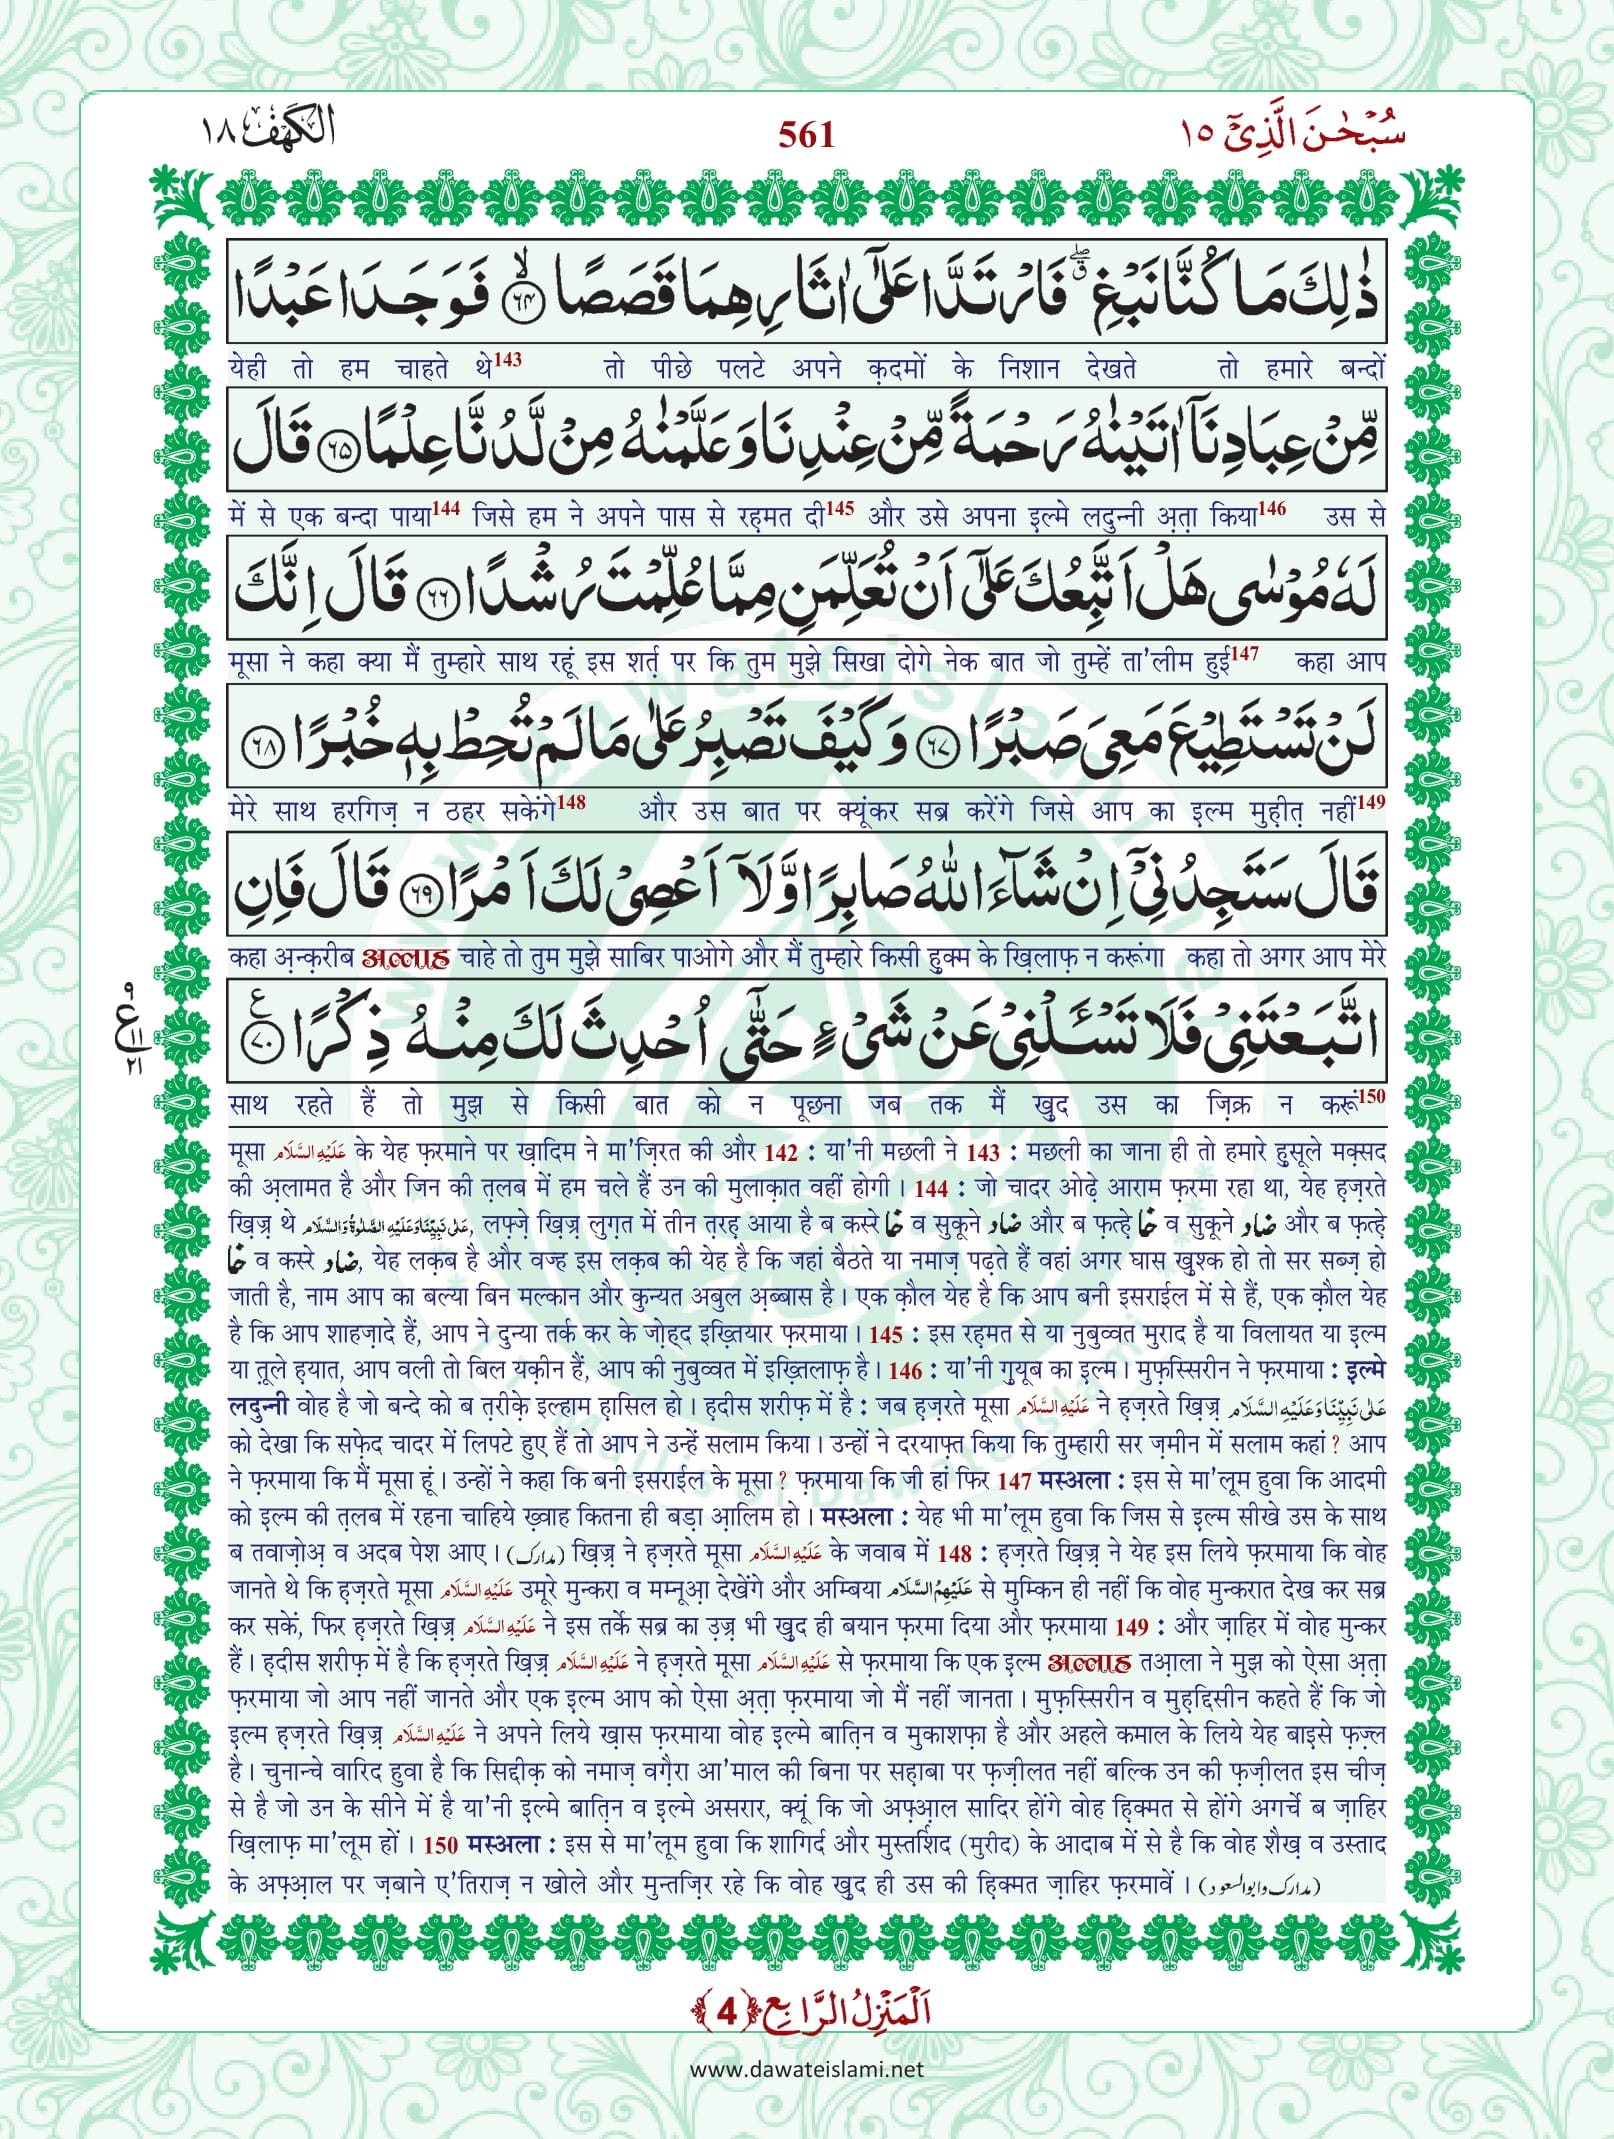 الكهف ١٨
561
سُبْحٰنَ الَّذِىْۤ ١٥
ذٰلِكَ مَا كُنَّا نَبْغِ ۖۗ فَارْتَدَّا عَلٰۤى اٰثَارِهِمَا قَصَصًا ۙ﴿۶۴﴾ فَوَجَدَا عَبْدًا
येही तो हम चाहते थे143 तो पीछे पलटे अपने क़दमों के निशान देखते तो हमारे बन्दों
مِّنْ عِبَادِنَاۤ اٰتَيْنٰهُ رَحْمَةً مِّنْ عِنْدِنَا وَعَلَّمْنٰهُ مِنْ لَّدُنَّا عِلْمًا ﴿۶۵﴾ قَالَ
में से एक बन्दा पाया144 जिसे हम ने अपने पास से रह़मत दी145 और उसे अपना इल्मे लदुन्नी अ़त़ा किया146 उस से
لَهٗ مُوْسٰى هَلْ اَتَّبِعُكَ عَلٰۤى اَنْ تُعَلِّمَنِ مِمَّا عُلِّمْتَ رُشْدًا ﴿۶۶﴾ قَالَ اِنَّكَ
मूसा ने कहा क्या मैं तुम्हारे साथ रहूं इस शर्त़ पर कि तुम मुझे सिखा दोगे नेक बात जो तुम्हें ता'लीम हुई147 कहा आप
لَنْ تَسْتَطِيْعَ مَعِىَ صَبْرًا ﴿۶۷﴾ وَكَيْفَ تَصْبِرُ عَلٰى مَا لَمْ تُحِطْ بِهٖ خُبْرًا ﴿۶۸﴾
मेरे साथ हरगिज़ न ठहर सकेंगे148 और उस बात पर क्यूंकर सब्र करेंगे जिसे आप का इल्म मुह़ीत़ नहीं149
قَالَ سَتَجِدُنِىْۤ اِنْ شَآءَ اللّٰهُ صَابِرًا وَّلَاۤ اَعْصِىْ لَكَ اَمْرًا ﴿۶۹﴾ قَالَ فَاِنِ
कहा अ़न्क़रीब अल्लाह चाहे तो तुम मुझे साबिर पाओगे और मैं तुम्हारे किसी हु़क्म के ख़िलाफ़ न करूंगा कहा तो अगर आप मेरे
اتَّبَعْتَنِىْ فَلَا تَسْـَٔلْنِىْ عَنْ شَىْءٍ حَتّٰۤى اُحْدِثَ لَكَ مِنْهُ ذِكْرًا ﴿۷۰﴾ ع
٩ ع ١١ ٢١
साथ रहते हैं तो मुझ से किसी बात को न पूछना जब तक मैं ख़ुद उस का ज़िक्र न करूं150
मूसा عَلَيْهِ السَّلَام के येह फ़रमाने पर ख़ादिम ने मा'ज़िरत की और 142 : या'नी मछली ने 143 : मछली का जाना ही तो हमारे हु़सूले मक़्सद
की अ़लामत है और जिन की त़लब में हम चले हैं उन की मुलाक़ात वहीं होगी। 144 : जो चादर ओढ़े आराम फ़रमा रहा था, येह ह़ज़रते
ख़िज़्र थे عَلٰى نَبِيِّنَا وَعَلَيْهِ الصَّلٰوةُ وَالسَّلَام, लफ़्ज़े ख़िज़्र लुग़त में तीन त़रह़ आया है ब कस्रे خا व सुकूने ضاد और ब फ़त्ह़े خا व सुकूने ضاد और ब फ़त्ह़े
خا व कस्रे ضاد, येह लक़ब है और वज्ह इस लक़ब की येह है कि जहां बैठते या नमाज़ पढ़ते हैं वहां अगर घास ख़ुश्क हो तो सर सब्ज़ हो
जाती है, नाम आप का बल्या बिन मल्कान और कुन्यत अबुल अ़ब्बास है। एक क़ौल येह है कि आप बनी इसराईल में से हैं, एक क़ौल येह
है कि आप शाहज़ादे हैं, आप ने दुन्या तर्क कर के ज़ोह्द इख़्तियार फ़रमाया। 145 : इस रह़मत से या नुबुव्वत मुराद है या विलायत या इल्म
या त़ूले ह़यात, आप वली तो बिल यक़ीन हैं, आप की नुबुव्वत में इख़्तिलाफ़ है। 146 : या'नी ग़ुयूब का इल्म। मुफ़स्सिरीन ने फ़रमाया : इल्मे
लदुन्नी वोह है जो बन्दे को ब त़रीक़े इल्हाम ह़ासिल हो। ह़दीस शरीफ़ में है : जब ह़ज़रते मूसा عَلَيْهِ السَّلَام ने ह़ज़रते ख़िज़्र عَلٰى نَبِيِّنَا وَعَلَيْهِ السَّلَام
को देखा कि सफ़ेद चादर में लिपटे हुए हैं तो आप ने उन्हें सलाम किया। उन्हों ने दरयाफ़्त किया कि तुम्हारी सर ज़मीन में सलाम कहां? आप
ने फ़रमाया कि मैं मूसा हूं। उन्हों ने कहा कि बनी इसराईल के मूसा? फ़रमाया कि जी हां फिर 147 मस्अला : इस से मा'लूम हुवा कि आदमी
को इल्म की त़लब में रहना चाहिये ख़्वाह कितना ही बड़ा आ़लिम हो। मस्अला : येह भी मा'लूम हुवा कि जिस से इल्म सीखे उस के साथ
ब तवाज़ोअ़ व अदब पेश आए। (مدارک) ख़िज़्र ने ह़ज़रते मूसा عَلَيْهِ السَّلَام के जवाब में 148 : ह़ज़रते ख़िज़्र ने येह इस लिये फ़रमाया कि वोह
जानते थे कि ह़ज़रते मूसा عَلَيْهِ السَّلَام उमूरे मुन्करा व मम्नूआ़ देखेंगे और अम्बिया عَلَيْهِمُ السَّلَام से मुम्किन ही नहीं कि वोह मुन्करात देख कर सब्र
कर सकें, फिर ह़ज़रते ख़िज़्र عَلَيْهِ السَّلَام ने इस तर्के सब्र का उ़ज़्र भी ख़ुद ही बयान फ़रमा दिया और फ़रमाया 149 : और ज़ाहिर में वोह मुन्कर
हैं। ह़दीस शरीफ़ में है कि ह़ज़रते ख़िज़्र عَلَيْهِ السَّلَام ने ह़ज़रते मूसा عَلَيْهِ السَّلَام से फ़रमाया कि एक इल्म अल्लाह तआ़ला ने मुझ को ऐसा अ़त़ा
फ़रमाया जो आप नहीं जानते और एक इल्म आप को ऐसा अ़त़ा फ़रमाया जो मैं नहीं जानता। मुफ़स्सिरीन व मुह़द्दिसीन कहते हैं कि जो
इल्म ह़ज़रते ख़िज़्र عَلَيْهِ السَّلَام ने अपने लिये ख़ास फ़रमाया वोह इल्मे बात़िन व मुकाशफ़ा है और अहले कमाल के लिये येह बाइसे फ़ज़्ल
है। चुनान्चे वारिद हुवा है कि सिद्दीक़ को नमाज़ वग़ैरा आ'माल की बिना पर सह़ाबा पर फ़ज़ीलत नहीं बल्कि उन की फ़ज़ीलत इस चीज़
से है जो उन के सीने में है या'नी इल्मे बात़िन व इल्मे असरार, क्यूं कि जो अफ़्आ़ल सादिर होंगे वोह ह़िक्मत से होंगे अगर्चे ब ज़ाहिर
ख़िलाफ़ मा'लूम हों। 150 मस्अला : इस से मा'लूम हुवा कि शागिर्द और मुस्तर्शिद (मुरीद) के आदाब में से है कि वोह शैख़ व उस्ताद
के अफ़्आ़ल पर ज़बाने ए'तिराज़ न खोले और मुन्तज़िर रहे कि वोह ख़ुद ही उस की ह़िक्मत ज़ाहिर फ़रमावें। (مدارک وابوالسعود)
اَلْمَنْزِلُ الرَّابِعُ ﴿4﴾
www.dawateislami.net